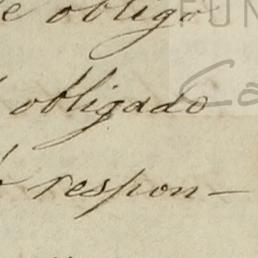 e obligo
obligado
respon-